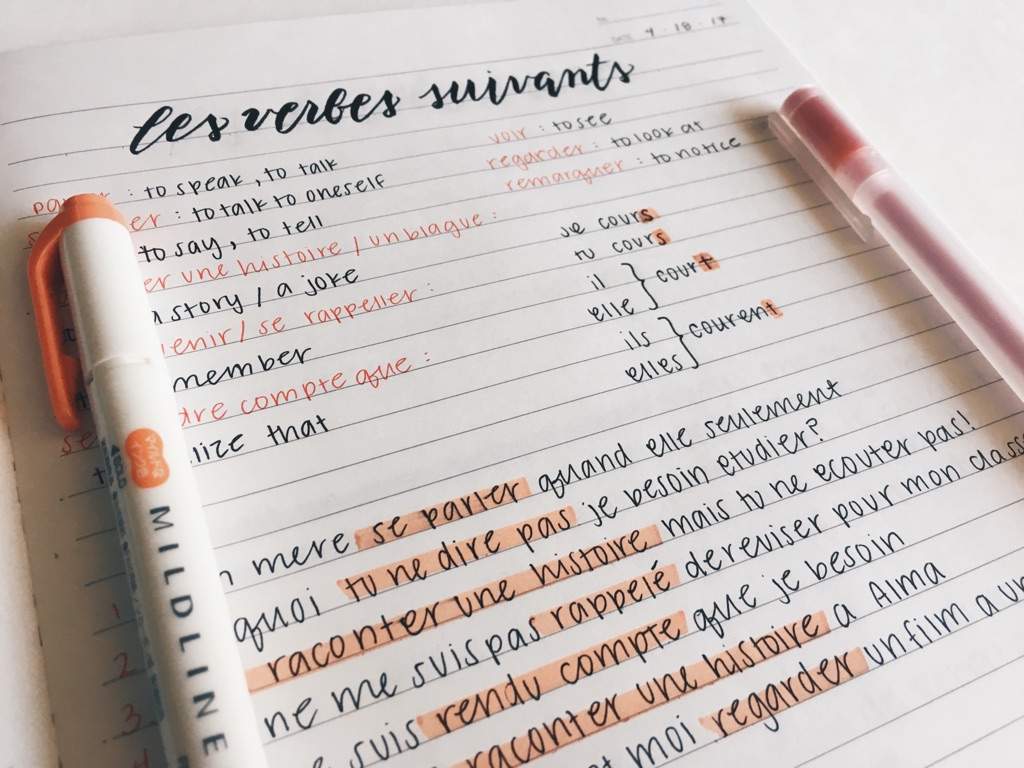 DATE 4 · 18 · 17
les verbes suivants
: to speak, to talk
: to talk to oneself
to say, to tell
er une histoire / un blague :
story / a joke
enir / se rappeller :
member
dre compte que :
se
lize that
voir : to see
regarder : to look at
remarquer : to notice
je cours
tu cours
il
elle
court
ils
elles
courent
1
mere se parler quand elle seulement
2
quoi tu ne dire pas je besoin etudier?
3
raconter une histoire mais tu ne ecouter pas!
4
ne me suis pas rappelé de reviser pour mon classe
suis rendu compte que je besoin
raconter une histoire a Alma
moi regarder un film a un
MILDLINE